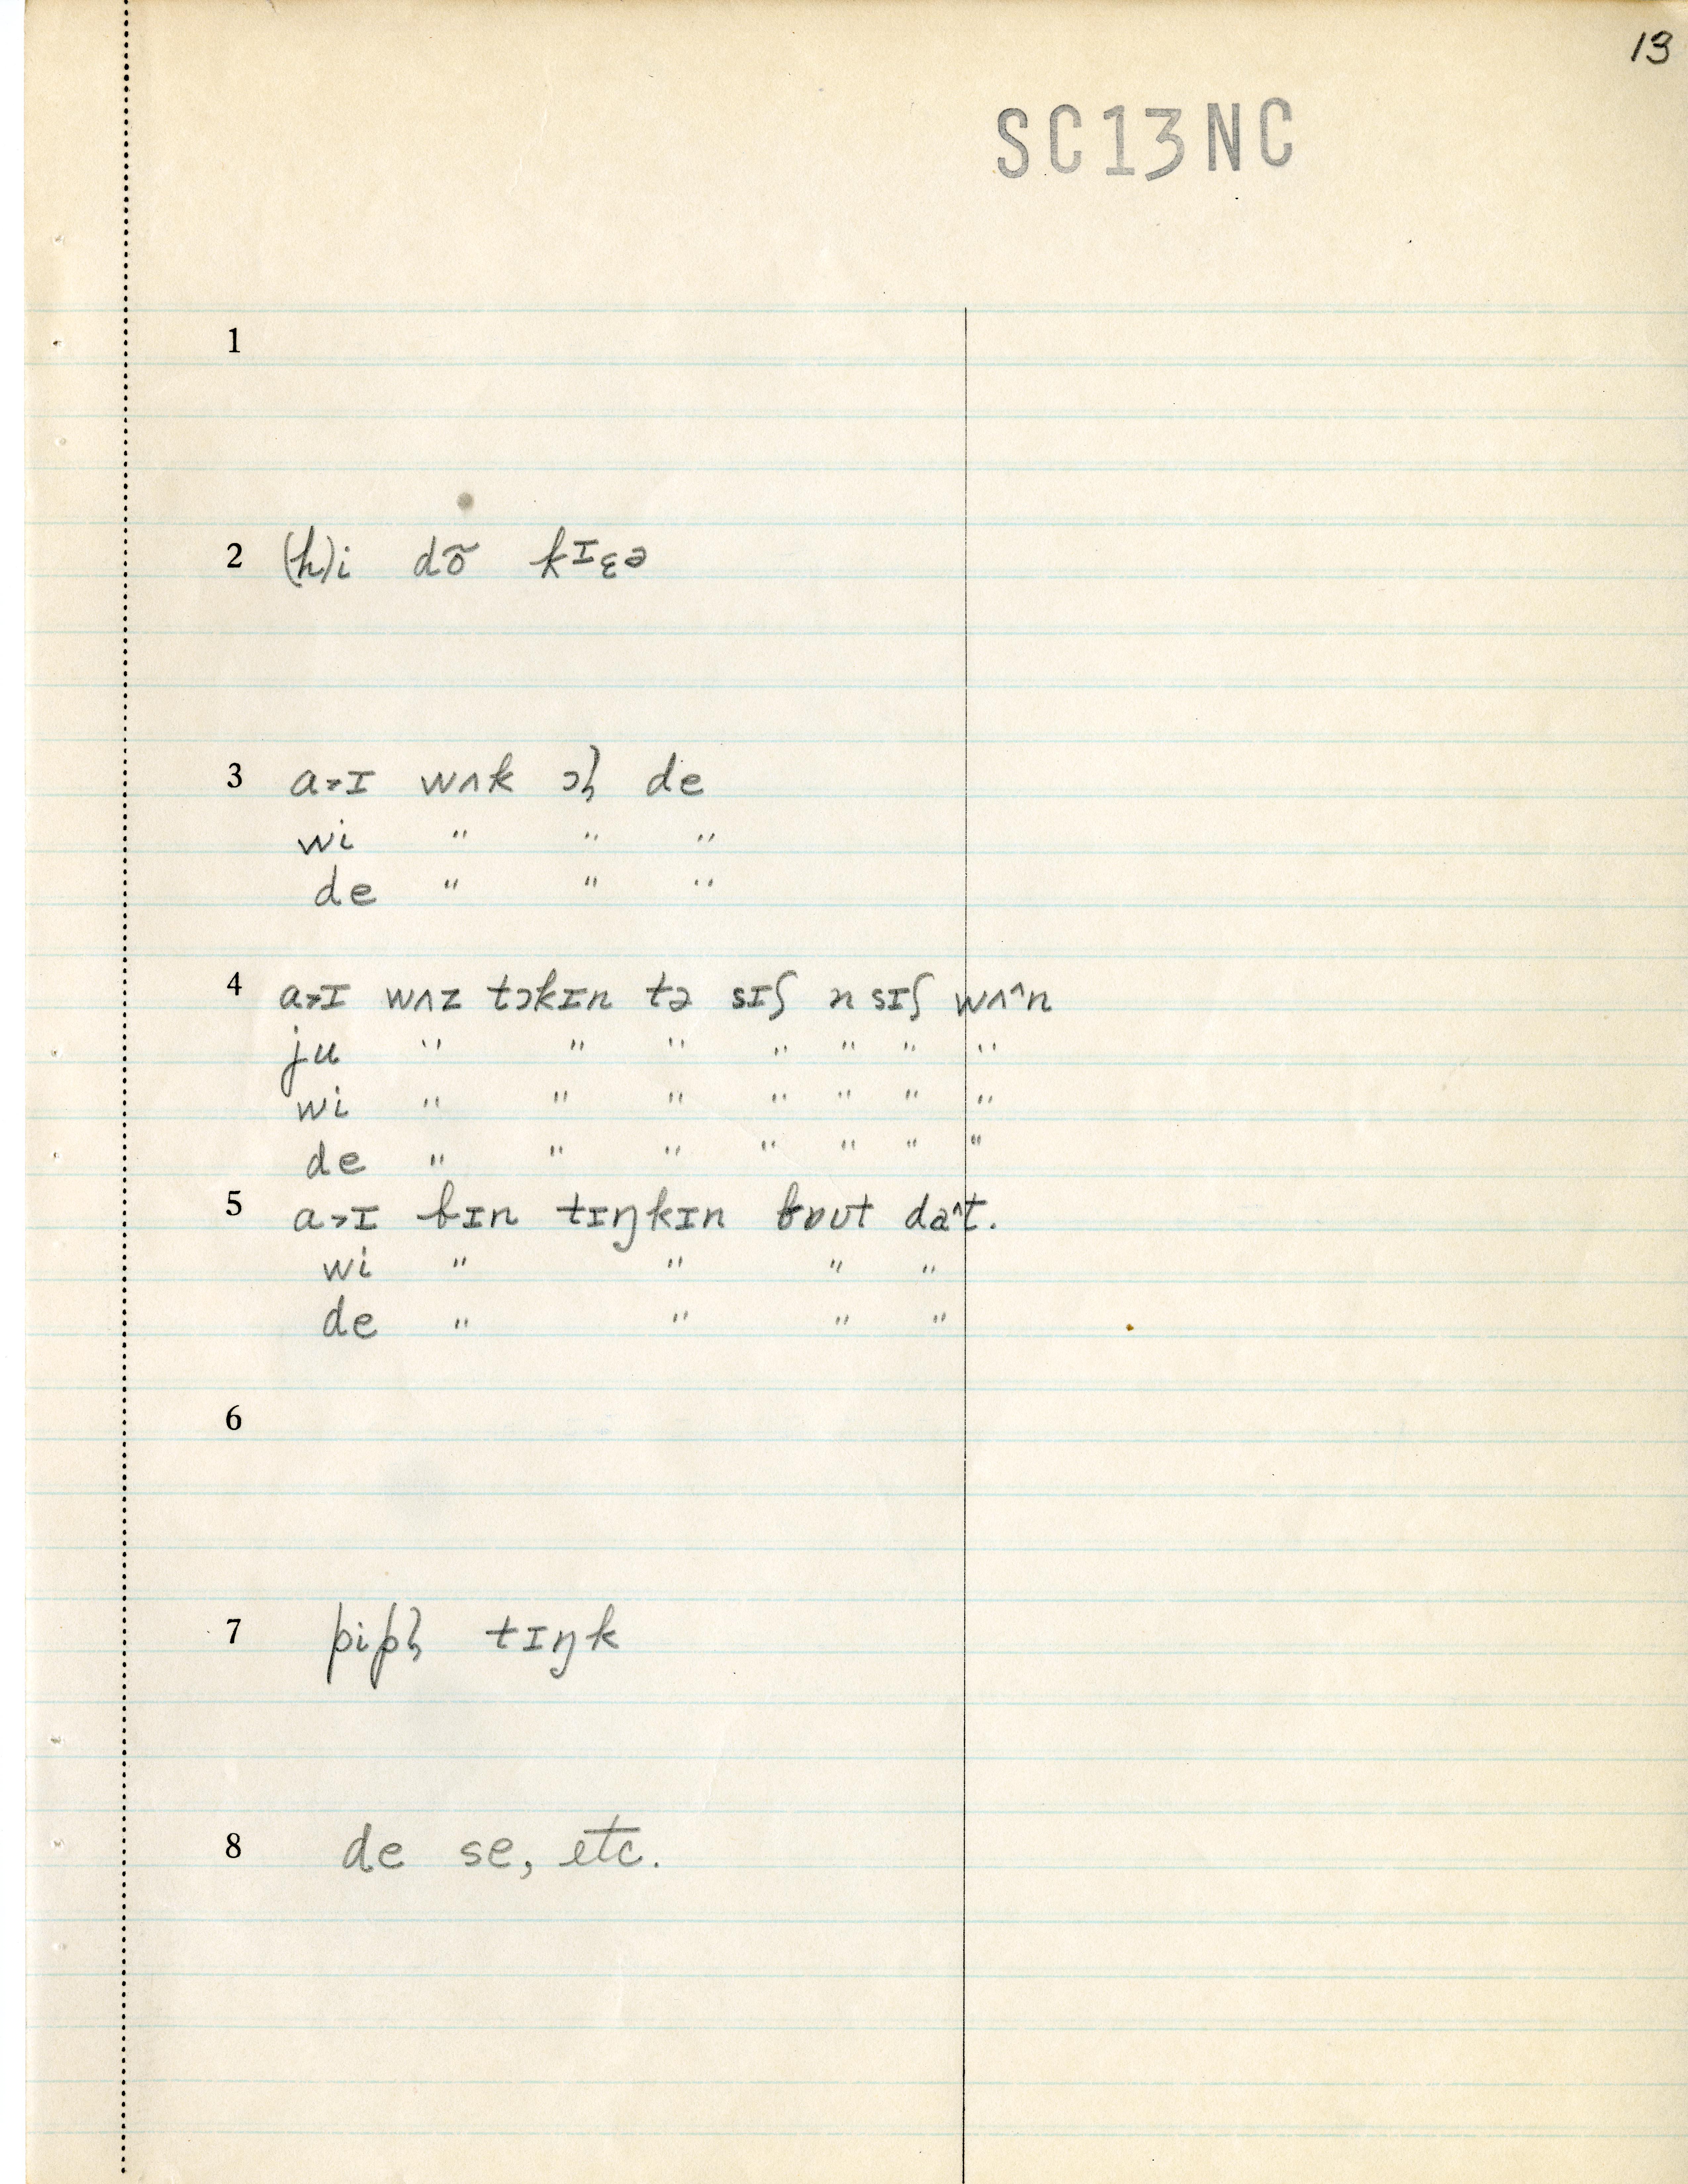 13
SC13NC
1
2 (h)i dõ kɪɛə
3 a˃ɪ wʌk ɔɫ de
wi " " "
de " " "
4 a˃ɪ wʌz tɔkɪn tə sɪʃ n sɪʃ wʌ^n
ju " " " " " " "
wi " " " " " " "
de " " " " " " "
5 a˃ɪ bɪn tɪŋkɪn bɒʊt da^t.
wi " " " "
de " " " "
6
7 pipɫ tɪŋk
8 de se, etc.